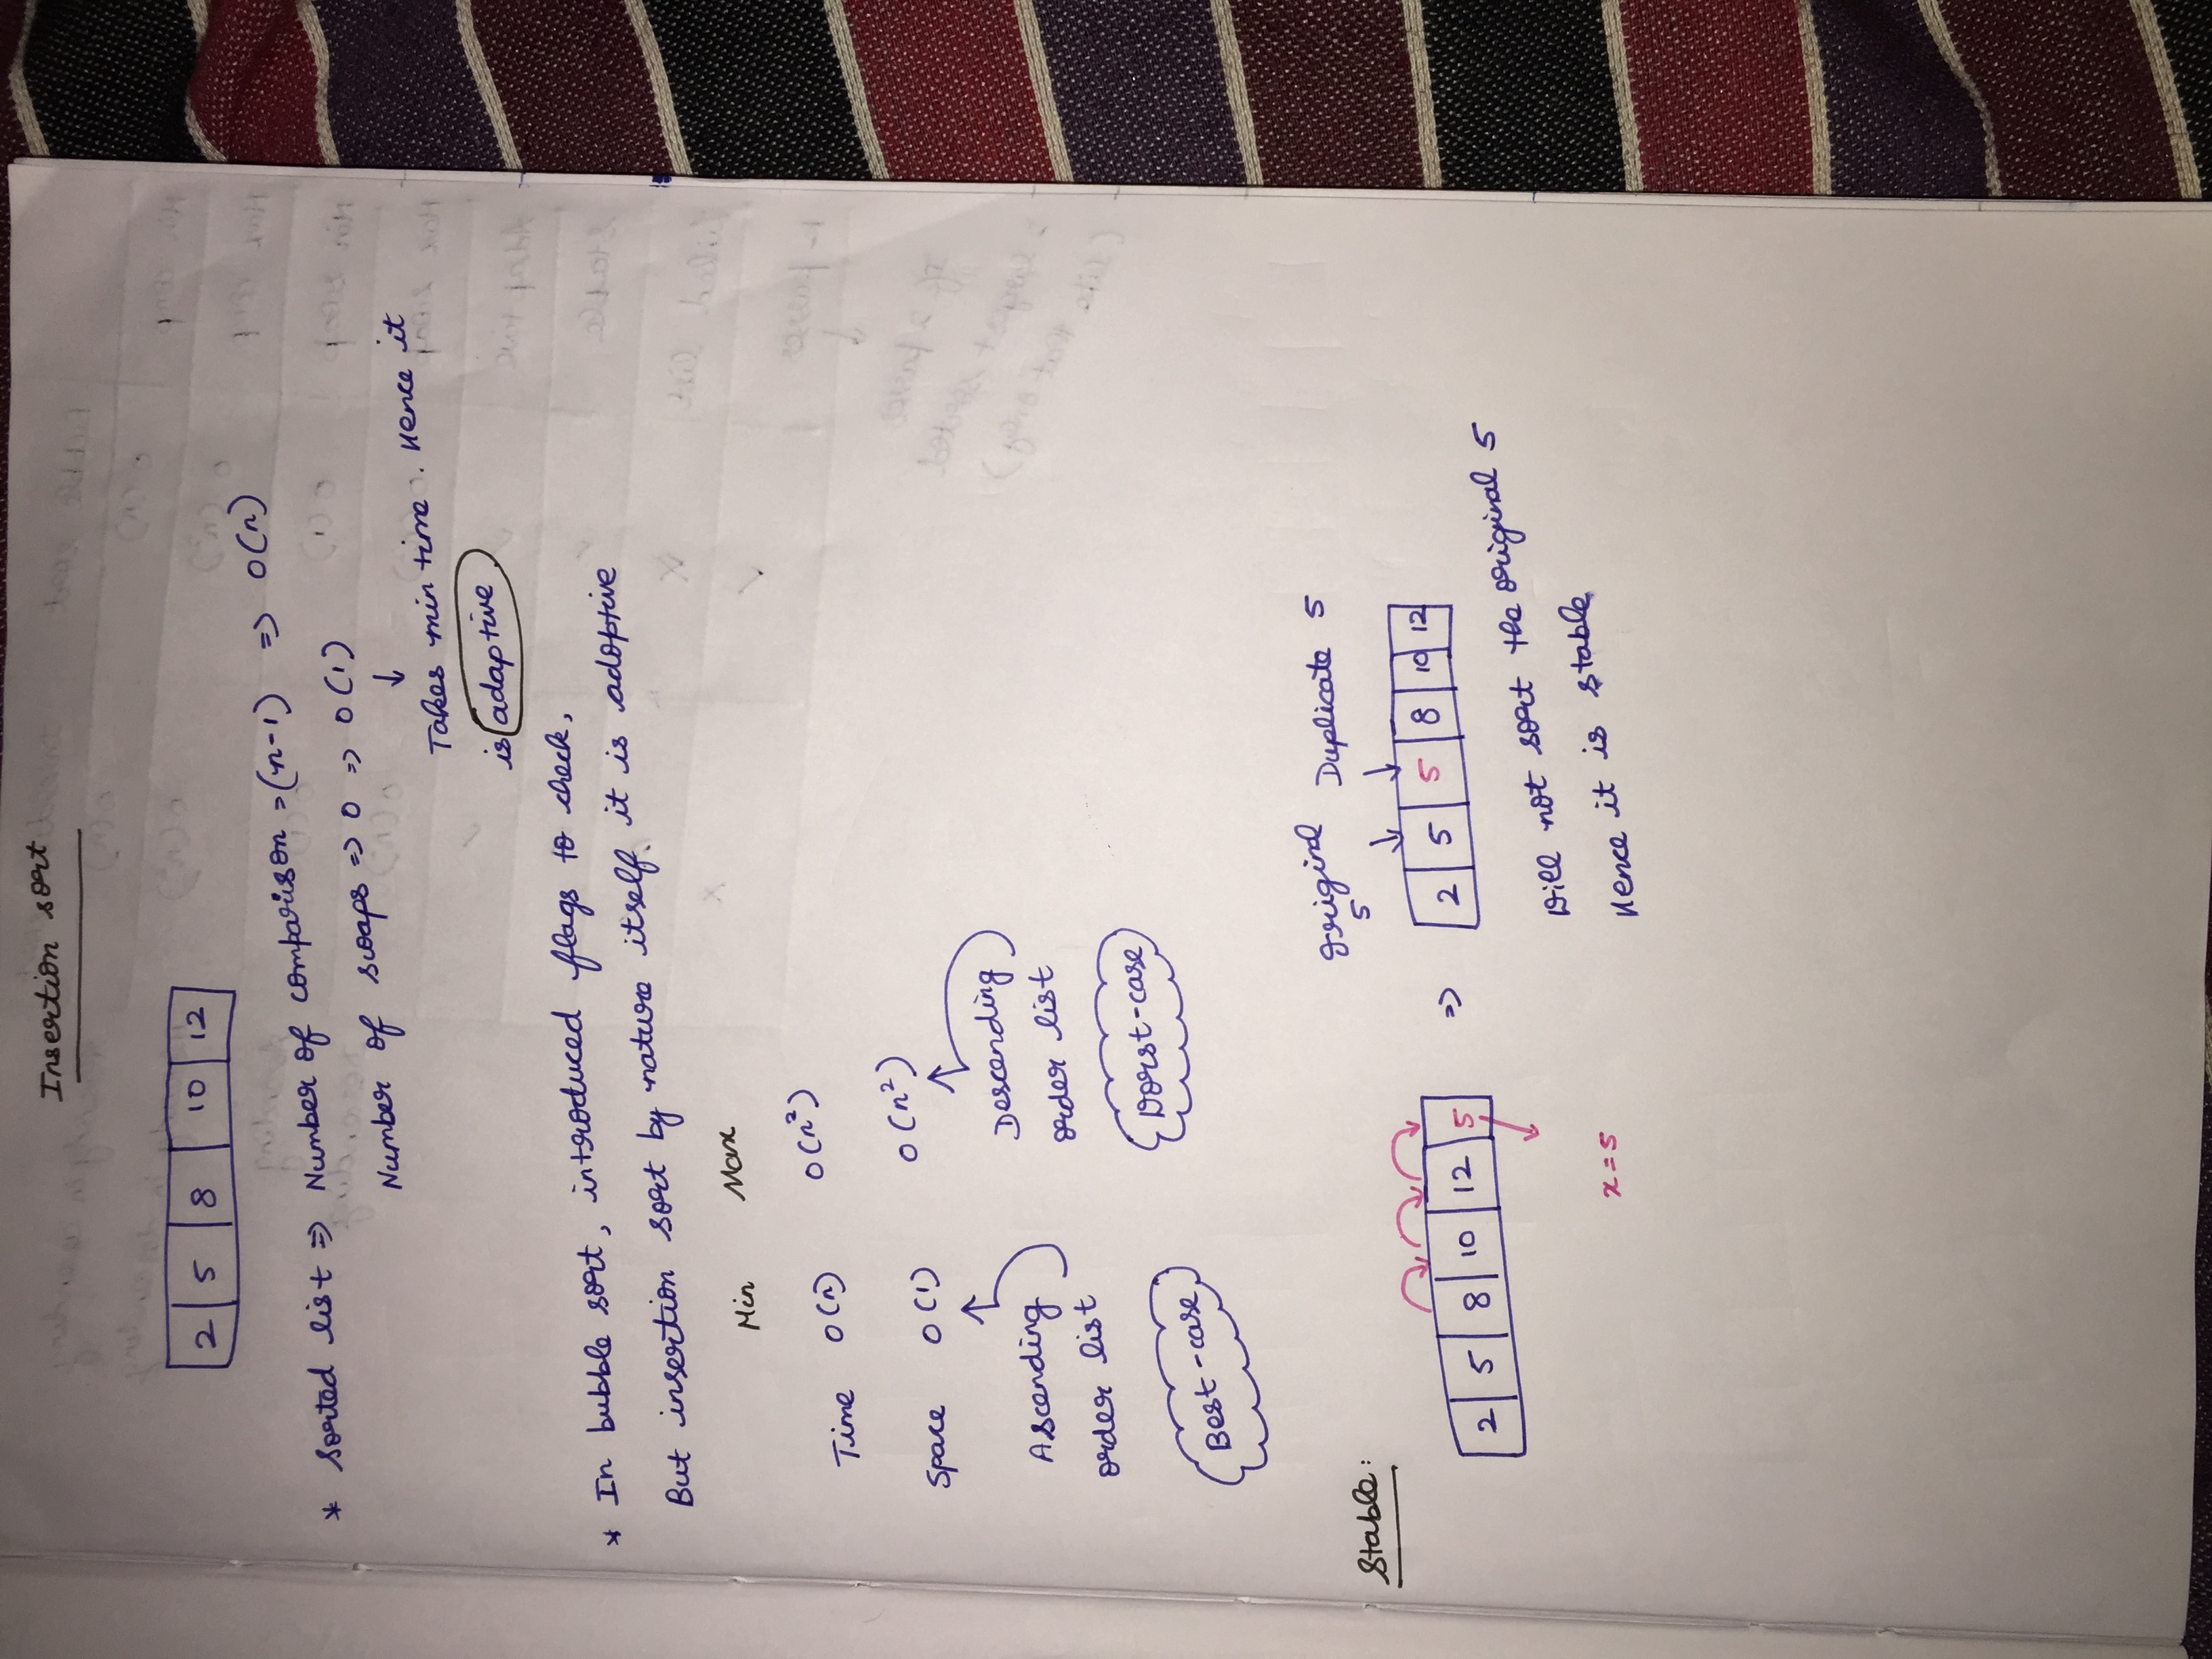 Insertion sort
2 5 8 10 12
* Sorted list => Number of comparison = (n-1) => O(n)
Number of swaps => 0 => O(1)
↓
Takes min time. Hence it
is adaptive
* In bubble sort, introduced flags to check,
But insertion sort by nature itself it is adoptive
Min Max
Time O(n) O(n²)
Space O(1) O(n²)
Ascending
order list
Descending
order list
Best-case
Worst-case
Stable:
2 5 8 10 12 5
x = 5
=>
Original
5
Duplicate 5
2 5 5 8 10 12
Will not sort the original 5
Hence it is stable